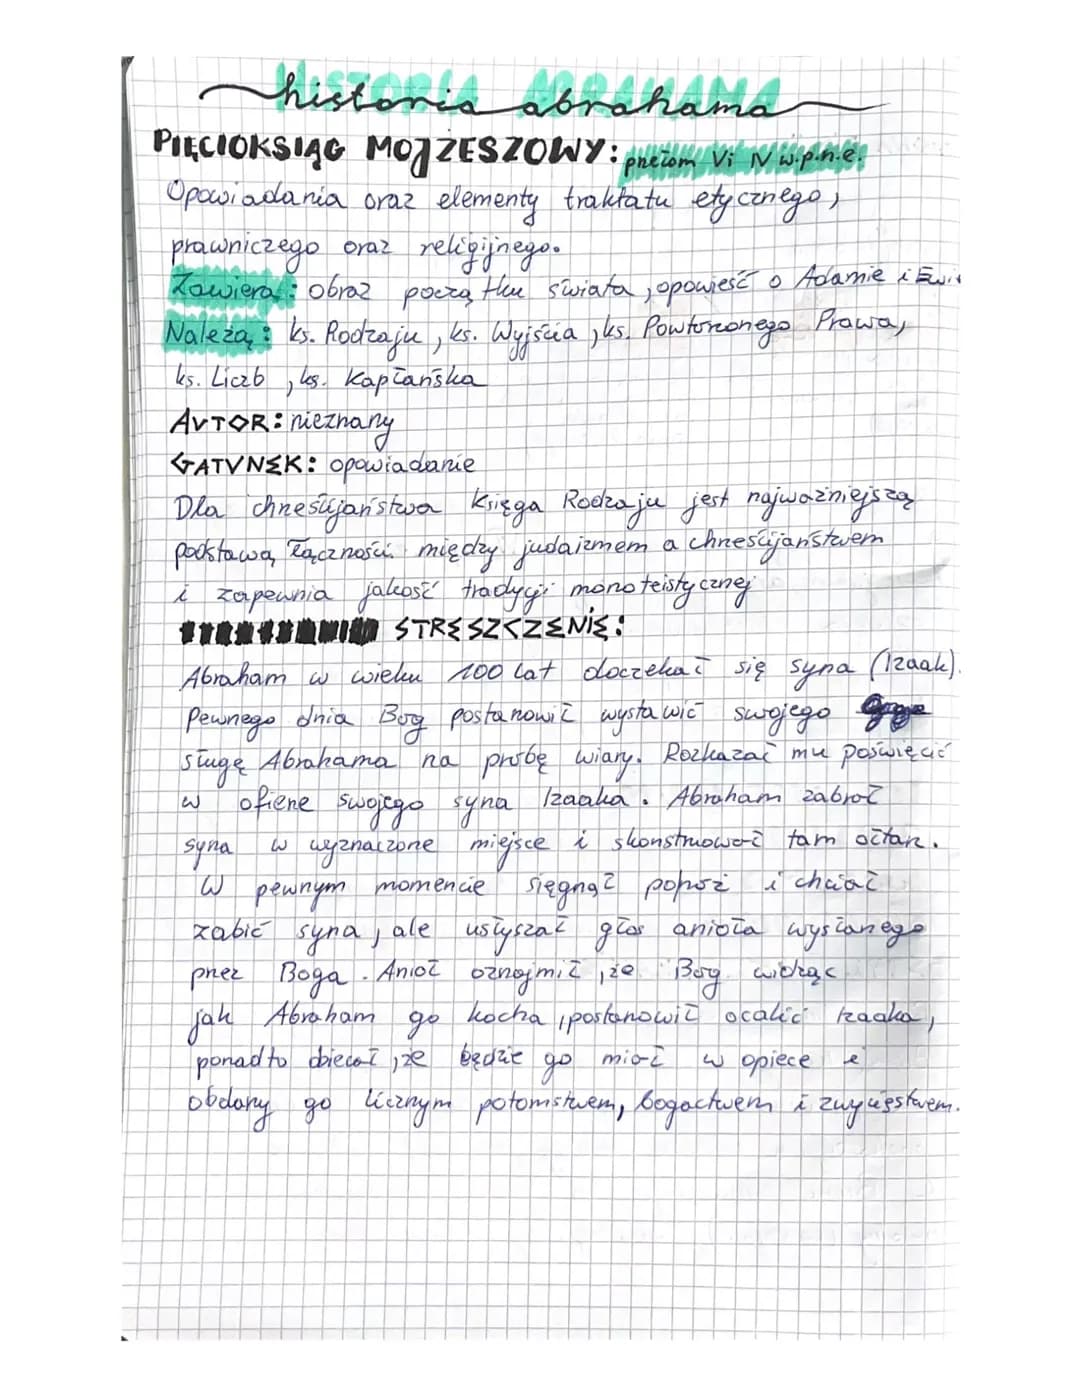 HISTORIA ABRAHAMA
historia abrahama
PIĘCIOKSIĄG MOJŻESZOWY: przełom V i IV w.p.n.e.
Opowiadania oraz elementy traktatu etycznego,
prawniczego oraz religijnego.
Zawiera: obraz początku świata, opowieść o Adamie i Ewie
Należą: ks. Rodzaju, ks. Wyjścia, ks. Powtórzonego Prawa,
ks. Liczb, ks. Kapłańska
AUTOR: nieznany
GATUNEK: opowiadanie
Dla chrześcijaństwa Księga Rodzaju jest najważniejszą
podstawą łączności między judaizmem a chrześcijaństwem
i zapewnia jakość tradycji monoteistycznej
STRESZCZENIE:
Abraham w wieku 100 lat doczekał się syna (Izaak).
Pewnego dnia Bóg postanowił wystawić swojego
sługę Abrahama na próbę wiary. Rozkazał mu poświęcić
w ofierze swojego syna Izaaka. Abraham zabrał
syna w wyznaczone miejsce i skonstruował tam ołtarz.
W pewnym momencie sięgnął po nóż i chciał
zabić syna, ale usłyszał głos anioła wysłanego
przez Boga. Anioł oznajmił, że Bóg widząc
jak Abraham go kocha, postanowił ocalić Izaaka,
ponadto obiecał, że będzie go miał w opiece i
obdarzy go licznym potomstwem, bogactwem i zwycięstwem.